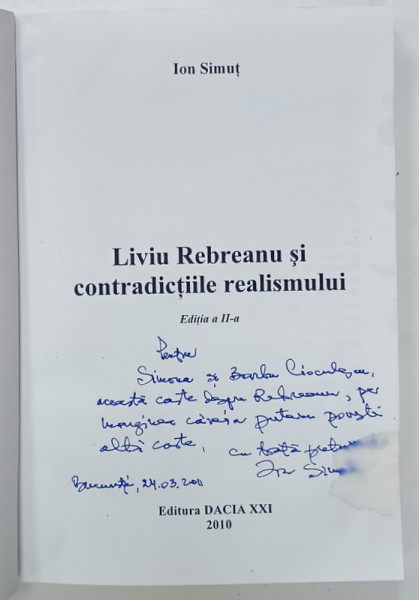 Ion Simuț
Liviu Rebreanu și
contradicțiile realismului
Ediția a II-a
Pentru
Simona și Barbu Cioculescu,
această carte despre Rebreanu, pe
marginea căreia putem povesti
altă carte, cu toată
Ion
București, 24.03.
Editura DACIA XXI
2010